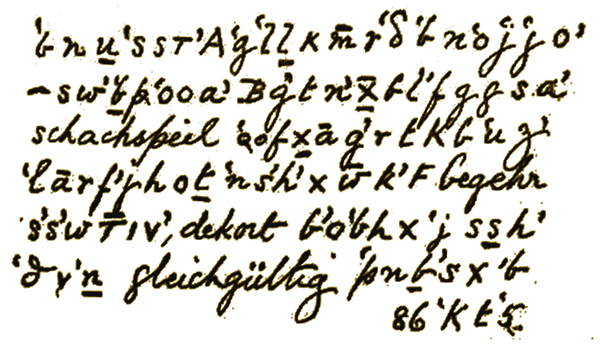 'b n u 's s T 'A 'g 'l l K m̄ r 'δ 'b n 'o j j o'
– s w 'b p 'o o a' B g' t n' x̄ b l' f g g s a'
schachspeil 'a o f x ā g' r t K b' u z'
'l ā r f' j h o t 'n s' h' x w̄ k' F begehr
's' s w T̄ I V', dekort b' o' b h x 'j s s h'
'd y 'n gleichgültig 'p n b 's x 'b
86 'K t 'S